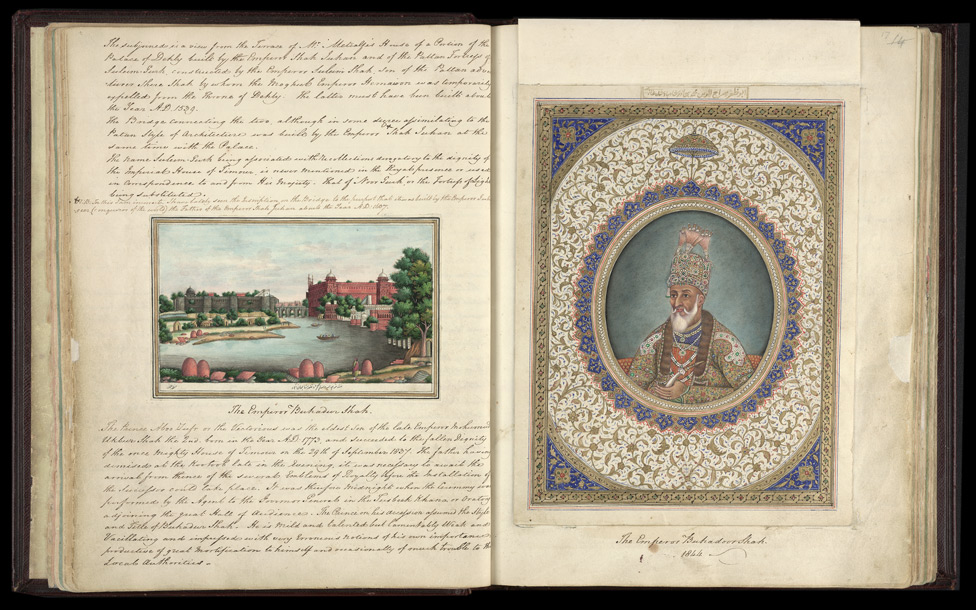 The subjoined is a view from the Terrace of Mr. Metcalfe's House of a Portion of the
Palace of Dehly built by the Emperor Shah Juhan and of the Pattan Fortress of
Suleem Gurh constructed by the Emperor Suleem Shah, Son of the Pattan adven
turer Shere Shah by whom the Moghul Emperor Hoomaoon was temporarily
expelled from the Throne of Dehly. The latter must have been built about
the Year A.D. 1539.
The Bridge connecting the two although in some degree assimilating to the
Patan Style of Architecture was built by the Emperor Shah Juhan at the
same time with the Palace.
The name Suleem Gurh being associated with recollections derogatory to the dignity of
the Imperial House of Timour is never mentioned in the Royal presence or used
in Correspondence to and from His Majesty. That of Noor Gurh or the Fortress of Light
being substituted.
the Inscription on the Bridge to the
the Father of the Emperor Shah Juhan about the Year A.D. 1607.
The Emperor Buhadur Shah.
The Prince Aboo Zufr or the Victorious was the eldest son of the late Emperor Mohummud
Ukbur Shah the 2nd. born in the Year A.D. 1773. and succeeded to the fallen Dignity
of the once Mighty House of Timour on the 29th of September 1837. The father having
demised at the Kootoob late in the evening, it was necessary to await the
arrival from thence of the several Ensigns of Royalty before the Installation of
the Successor could take place. It was therefore Midnight when the Ceremony was
performed by the Agent to the Governor General in the Tusbeeh Khana or Oratory
adjoining the great Hall of Audience. The Prince on his accession assumed the Style
and Title of Buhadur Shah. He is mild and talented but lamentably Weak and
Vacillating and impressed with very erroneous notions of his own importance
productive of great Mortification to himself and occasionally of much trouble to the
Local Authorities.
14
The Emperor Buhadoor Shah.
1844